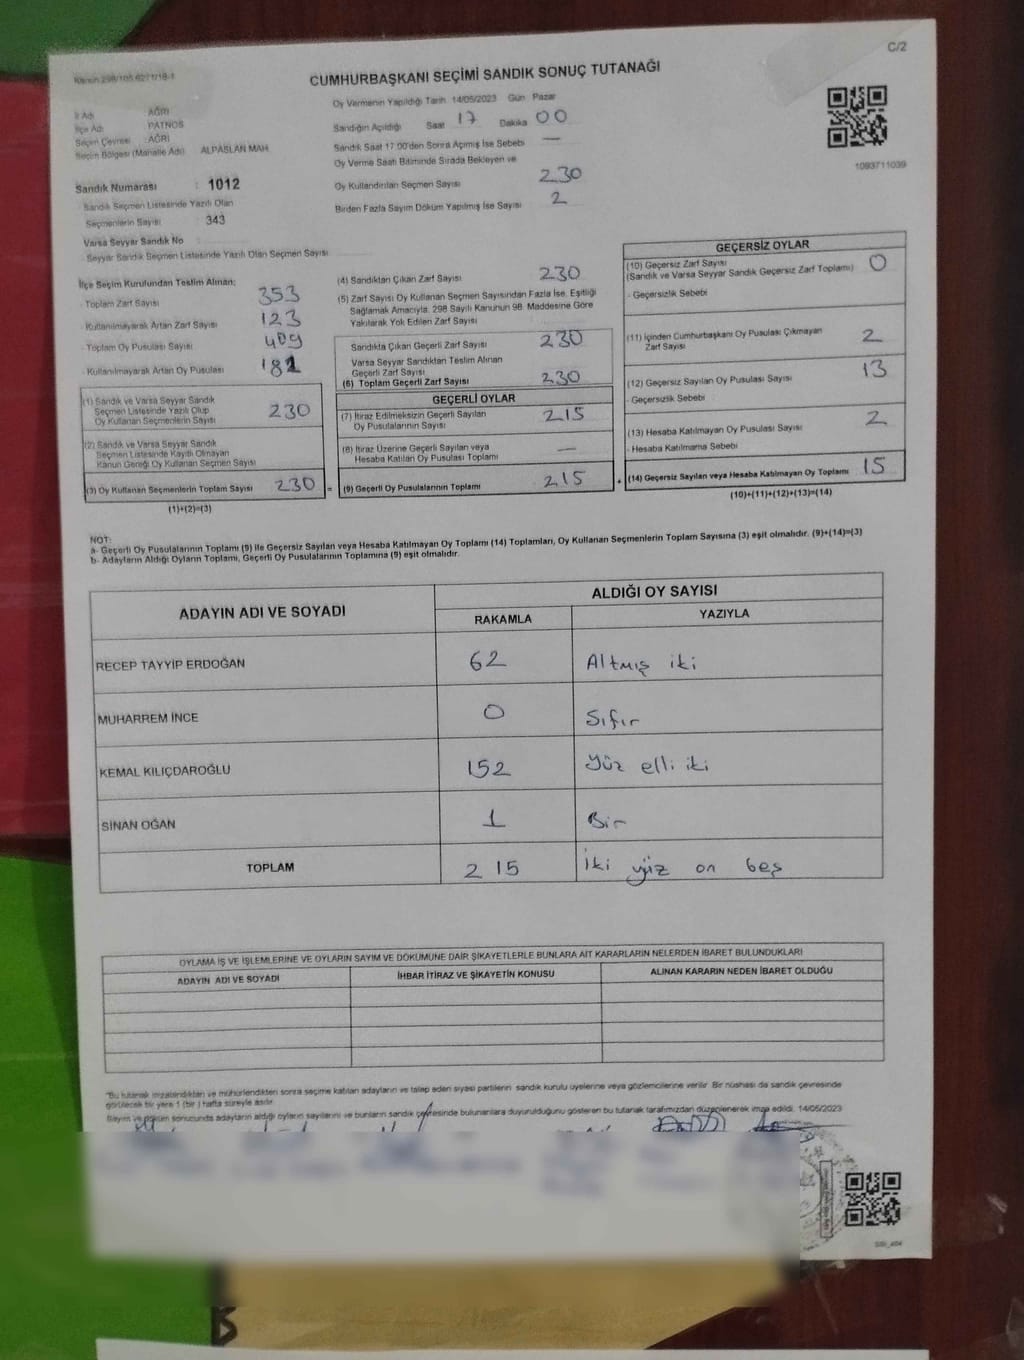 C/2
CUMHURBAŞKANI SEÇİMİ SANDIK SONUÇ TUTANAĞI
İl Adı : AĞRI
İlçe Adı : PATNOS
Seçim Çevresi : AĞRI
Seçim Bölgesi (Mahalle Adı) ALPASLAN MAH
Sandık Numarası : 1012
Sandık Seçmen Listesinde Yazılı Olan
Seçmenlerin Sayısı 343
Varsa Seyyar Sandık No
Seyyar Sandık Seçmen Listesinde Yazılı Olan Seçmen Sayısı
Oy Vermenin Yapıldığı Tarih 14/05/2023 Gün Pazar
Sandığın Açıldığı Saat 17 Dakika 00
Sandık Saat 17.00'den Sonra Açımış İse Sebebi —
Oy Verme Saati Bitiminde Sırada Bekleyen ve
Oy Kullandırılan Seçmen Sayısı 230
Birden Fazla Sayım Döküm Yapılmış İse Sayısı 2
1093711039
İlçe Seçim Kurulundan Teslim Alınan;
- Toplam Zarf Sayısı 353
- Kullanılmayarak Artan Zarf Sayısı 123
- Toplam Oy Pusulası Sayısı 409
- Kullanılmayarak Artan Oy Pusulası 181
(1) Sandık ve Varsa Seyyar Sandık
Seçmen Listesinde Yazılı Olup
Oy Kullanan Seçmenlerin Sayısı 230
(2) Sandık ve Varsa Seyyar Sandık
Seçmen Listesinde Kayıtlı Olmayan
Kanun Gereği Oy Kullanan Seçmen Sayısı
(3) Oy Kullanan Seçmenlerin Toplam Sayısı 230 =
(1)+(2)=(3)
(4) Sandıktan Çıkan Zarf Sayısı 230
(5) Zarf Sayısı Oy Kullanan Seçmen Sayısından Fazla İse, Eşitliği
Sağlamak Amacıyla, 298 Sayılı Kanunun 98. Maddesine Göre
Yakılarak Yok Edilen Zarf Sayısı
Sandıkta Çıkan Geçerli Zarf Sayısı 230
Varsa Seyyar Sandıktan Teslim Alınan
Geçerli Zarf Sayısı
(6) Toplam Geçerli Zarf Sayısı 230
GEÇERLİ OYLAR
(7) İtiraz Edilmeksizin Geçerli Sayılan
Oy Pusulalarının Sayısı 215
(8) İtiraz Üzerine Geçerli Sayılan veya
Hesaba Katılan Oy Pusulası Toplamı —
(9) Geçerli Oy Pusulalarının Toplamı 215 +
GEÇERSİZ OYLAR
(10) Geçersiz Zarf Sayısı
(Sandık ve Varsa Seyyar Sandık Geçersiz Zarf Toplamı) 0
- Geçersizlik Sebebi
(11) İçinden Cumhurbaşkanı Oy Pusulası Çıkmayan
Zarf Sayısı 2
(12) Geçersiz Sayılan Oy Pusulası Sayısı 13
- Geçersizlik Sebebi
(13) Hesaba Katılmayan Oy Pusulası Sayısı 2
- Hesaba Katılmama Sebebi
(14) Geçersiz Sayılan veya Hesaba Katılmayan Oy Toplamı 15
(10)+(11)+(12)+(13)=(14)
NOT:
a- Geçerli Oy Pusulalarının Toplamı (9) ile Geçersiz Sayılan veya Hesaba Katılmayan Oy Toplamı (14) Toplamları, Oy Kullanan Seçmenlerin Toplam Sayısına (3) eşit olmalıdır. (9)+(14)=(3)
b- Adayların Aldığı Oyların Toplamı, Geçerli Oy Pusulalarının Toplamına (9) eşit olmalıdır.
ADAYIN ADI VE SOYADI ALDIĞI OY SAYISI
RAKAMLA YAZIYLA
RECEP TAYYİP ERDOĞAN 62 Altmış iki
MUHARREM İNCE 0 Sıfır
KEMAL KILIÇDAROĞLU 152 Yüz elli iki
SİNAN OĞAN 1 Bir
TOPLAM 215 İki yüz on beş
OYLAMA İŞ VE İŞLEMLERİNE VE OYLARIN SAYIM VE DÖKÜMÜNE DAİR ŞİKAYETLERLE BUNLARA AİT KARARLARIN NELERDEN İBARET BULUNDUKLARI
ADAYIN ADI VE SOYADI İHBAR İTİRAZ VE ŞİKAYETİN KONUSU ALINAN KARARIN NEDEN İBARET OLDUĞU
"Bu tutanak imzalandıktan ve mühürlendikten sonra seçime katılan adayların ve talep eden siyasi partilerin sandık kurulu üyelerine veya gözlemcilerine verilir. Bir nüshası da sandık çevresinde
görülecek bir yere 1 (bir) hafta süreyle asılır.
Sayım ve döküm sonucunda adayların aldığı oyların sayılarını ve bunların sandık çevresinde bulunanlara duyurulduğunu gösteren bu tutanak tarafımızdan düzenlenerek imza edildi. 14/05/2023